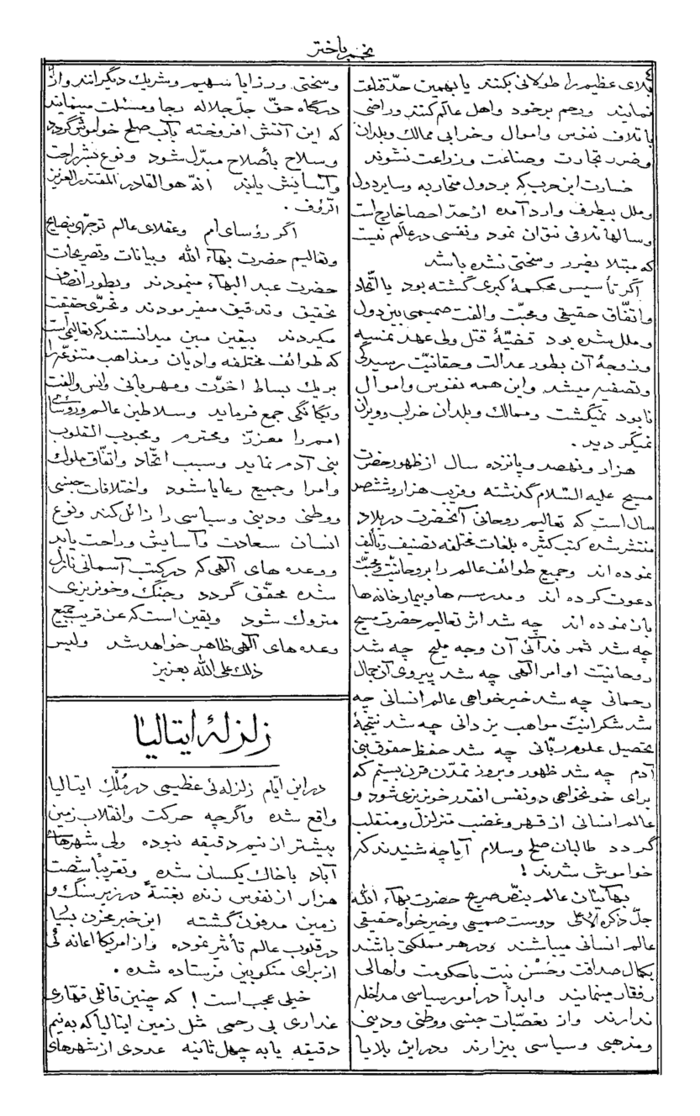 نجم باختر
۴
بلای عظیم را طولانی نکنند یا بهمین حدّ قناعت
نمایند ورحم برخود واهل عالم کنند وراضی
باتلاف نفوس واموال وخرابی ممالک وبلدان
وضرر تجارت وصناعت وزراعت نشوند
خسارت این حرب که بر دول متحاربه وسایر دول
وملل بیطرف وارد آمده از حدّ احصا خارج است
وسالها تلافی نتوان نمود ونفسی در عالم نیست
که مبتلا بضرر وسختی نشده باشد
اگر تأسیس محکمهٔ کبری گشته بود یا اتّحاد
واتّفاق حقیقی ومحبّت والفت صمیمی بین دول
وملل شده بود قضیّهٔ قتل ولی عهد نمسه
وزوجهٔ آن بطور عدالت وحقانیّت رسیدگی
وتصفیه میشد واین همه نفوس واموال
نابود نمیگشت وممالک وبلدان خراب وویران
نمیگردید .
هزار ونهصد وپانزده سال از ظهور حضرت
مسیح علیه السّلام گذشته وقریب هزار وششصد
سال است که تعالیم روحانی آنحضرت در بلاد
منتشر شده کتب کثیره بلغات مختلفه تصنیف وتألیف
نموده اند وجمیع طوائف عالم را بروحانیّت ومحبّت
دعوت کرده اند ومدرسه ها وبیمارخانه ها
باز نموده اند چه شد اثر تعالیم حضرت مسیح
چه شد ثمر فدائی آن وجه ملیح چه شد
روحانیّت اوامر الهی چه شد پیروی آن جمال
رحمانی چه شد خیر خواهی عالم انسانی چه
شد شکرانیّت مواهب یزدانی چه شد نتیجهٔ
تحصیل علوم ربّانی چه شد حفظ حقوق بنی
آدم چه شد ظهور وبروز تمدّن قرن بیستم که
برای خونخواهی دو نفس انقدر خونریزی شود و
عالم انسانی از قهر وغضب متزلزل ومنقلب
گردد طالبان صلح وسلام آیا چه شنیدند که
خواموش شدند !
بهائیان عالم بنصّ صریح حضرت بهاء الله
جلّ ذکره الاعلی دوست صمیمی وخیر خواه حقیقی
عالم انسانی میباشند ودر هر مملکتی باشند
بکمال صداقت وحسن نیت با حکومت واهالی
رفتار مینمایند وابداً در امور سیاسی مداخله
ندارند واز تعصّبات جنسی ووطنی ودینی
ومذهبی وسیاسی بیزارند ودر این بلایا
وسختی ورزایا سهیم وشریک دیگرانند واز
درگاه حقّ جلّ جلاله رجا ومسئلت مینمایند
که این آتش افروخته بآب صلح خواموش گردد
وسلاح باصلاح مبدّل شود ونوع بشر راحت
وآسایش یابد انّه هو القادر المقتدر العزیز
الرّؤف .
اگر رؤسای امم وعقلای عالم توجّهی بنصایح
وتعالیم حضرت بهاء الله وبیانات وتصریحات
حضرت عبد البهاء مینمودند وبطور انصاف
تحقیق وتدقیق میفرمودند وتحرّی حقیقت
میکردند بیقین مبین میدانستند که تعالیمی است
که طوائف مختلفه وادیان ومذاهب متنوّعه را
بریک بساط اخوّت ومهربانی وانس والفت
ویگانگی جمع فرماید وسلاطین عالم ورؤسای
امم را معزّز ومحترم ومحبوب القلوب
بنی آدم نماید وسبب اتّحاد واتّفاق ملوک
وامرا وجمیع رعایا شود واختلافات جنسی
ووطنی ودینی وسیاسی را زائل کند ونوع
انسان سعادت وآسایش وراحت یابد
ووعده های الهی که در کتب آسمانی نازل
شده محقّق گردد وجنگ وخونریزی
متروک شود ویقین است که عن قریب جمیع
وعده های الهی ظاهر خواهد شد ولیس
ذلک علی الله بعزیز
زلزلهٔ ایتالیا
در این ایام زلزله ئی عظیمی در مُلک ایتالیا
واقع شده واگرچه حرکت وانقلاب زمین
بیشتر از نیم دقیقه نبوده ولی شهرهای
آباد باخاک یکسان شده وتقریباً شصت
هزار از نفوس زنده بغتةً در زیر سنگ و
زمین مدفون گشته این خبر محزن بسیار
در قلوب عالم تأثّر نموده واز امریکا اعانه ئی
از برای منکوبین فرستاده شده .
خیلی عجب است ! که چنین قاتلی قهّاری
غدّاری بی رحمی مثل زمین ایتالیا که به نیم
دقیقه یا به چهل ثانیه عددی از شهرهای